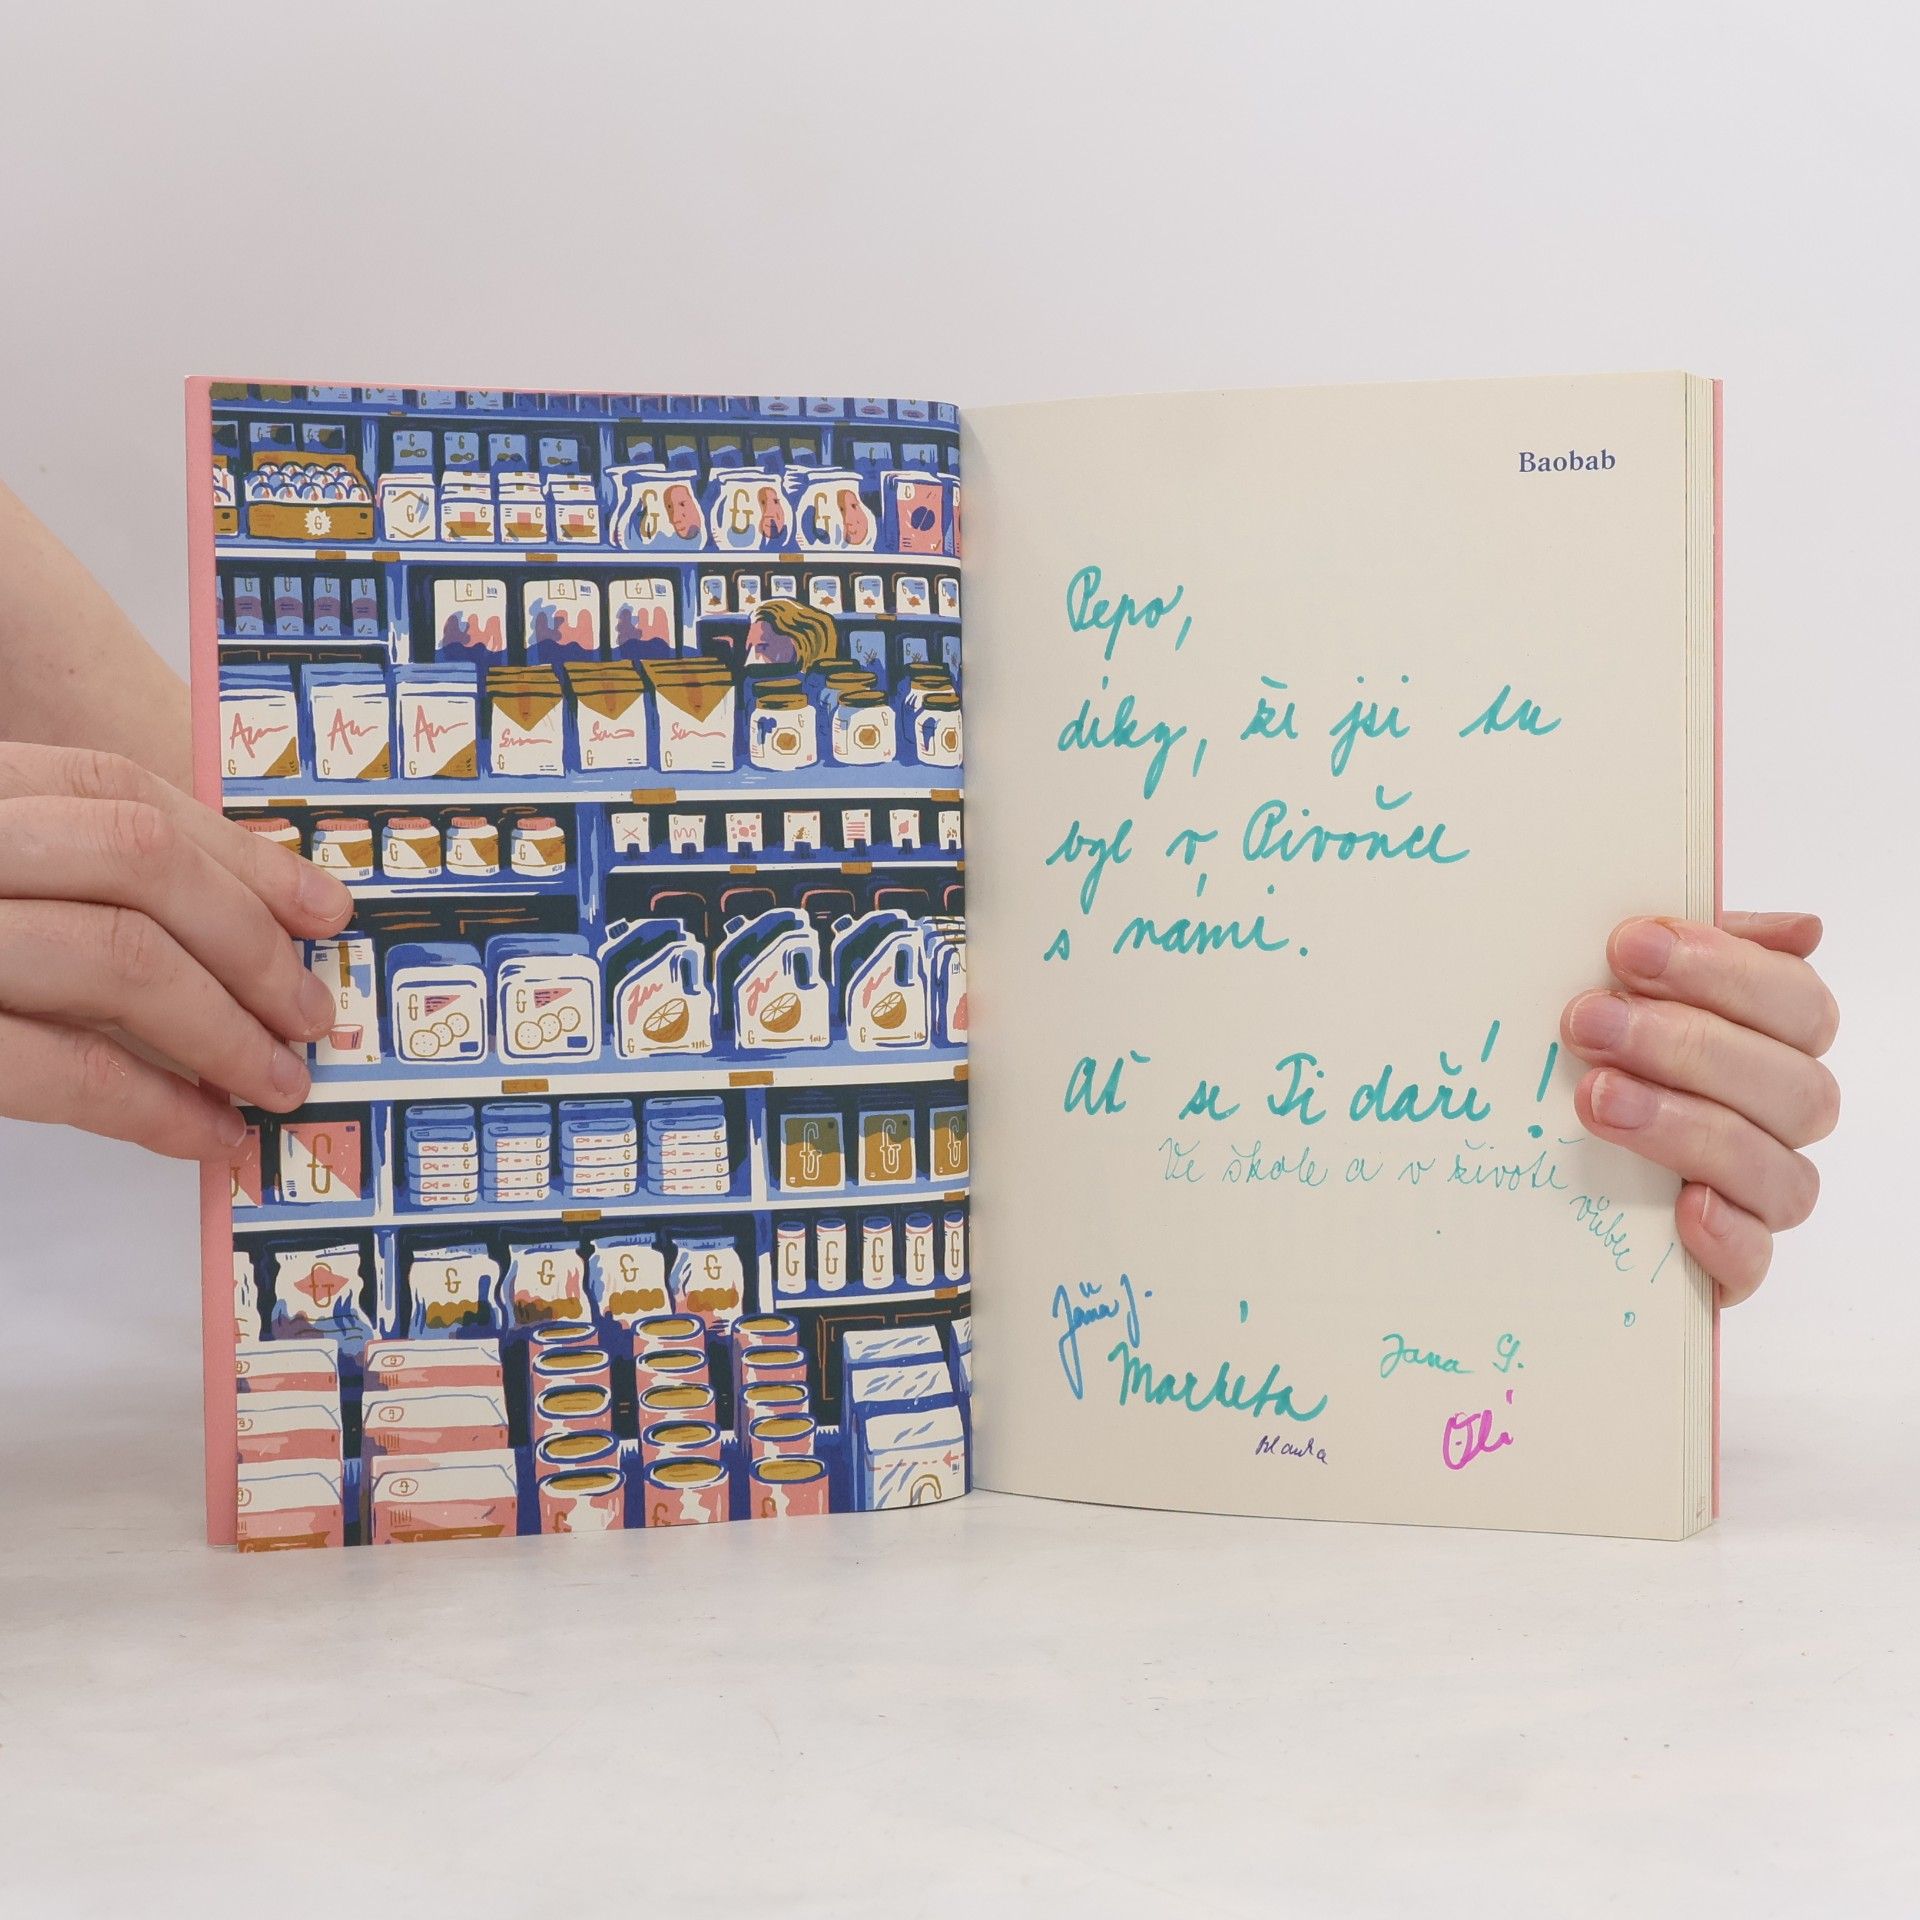 Baobab
Pepo,
díky, že jsi tu
byl v Pivoňce
s námi.
Ať se Ti daří!
Ve škole a v životě vůbec!
Jáňa J.
Markéta
Jana G.
Blanka
Oli